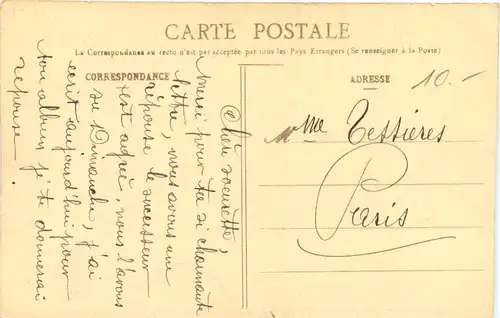 CARTE POSTALE
La Correspondance au recto n'est pas acceptée par tous les Pays Etrangers (Se renseigner à la Poste)
CORRESPONDANCE
Chère soeurette,
Merci pour ta si charmante
lettre, nous avons une
réponse le successeur
est agréé, nous l'avons
su Dimanche, j'ai
écrit aujourd'hui pour
ton album je te donnerai
reponse.
ADRESSE
10.-
Mme Tessières
Paris